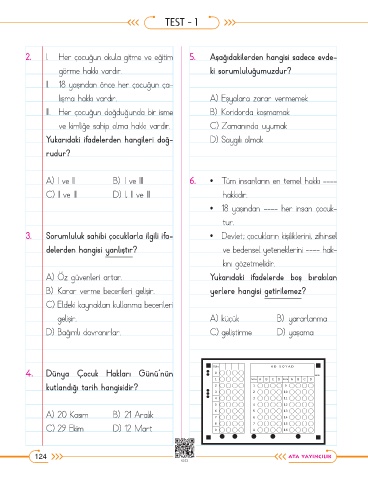 TEST - 1
2. I. Her çocuğun okula gitme ve eğitim
görme hakkı vardır.
II. 18 yaşından önce her çocuğun ça-
lışma hakkı vardır.
III. Her çocuğun doğduğunda bir isme
ve kimliğe sahip olma hakkı vardır.
Yukarıdaki ifadelerden hangileri doğ-
rudur?
A) I ve II B) I ve III
C) II ve III D) I, II ve III
3. Sorumluluk sahibi çocuklarla ilgili ifa-
delerden hangisi yanlıştır?
A) Öz güvenleri artar.
B) Karar verme becerileri gelişir.
C) Eldeki kaynakları kullanma becerileri
gelişir.
D) Bağımlı davranırlar.
4. Dünya Çocuk Hakları Günü'nün
kutlandığı tarih hangisidir?
A) 20 Kasım B) 21 Aralık
C) 29 Ekim D) 12 Mart
5. Aşağıdakilerden hangisi sadece evde-
ki sorumluluğumuzdur?
A) Eşyalara zarar vermemek
B) Koridorda koşmamak
C) Zamanında uyumak
D) Saygılı olmak
6. • Tüm insanların en temel hakkı ----
hakkıdır.
• 18 yaşından ---- her insan çocuk-
tur.
• Devlet; çocukların kişiliklerini, zihinsel
ve bedensel yeteneklerini ---- hak-
kını gözetmelidir.
Yukarıdaki ifadelerde boş bırakılan
yerlere hangisi getirilemez?
A) küçük B) yararlanma
C) geliştirme D) yaşama
124
ATA YAYINCILIK